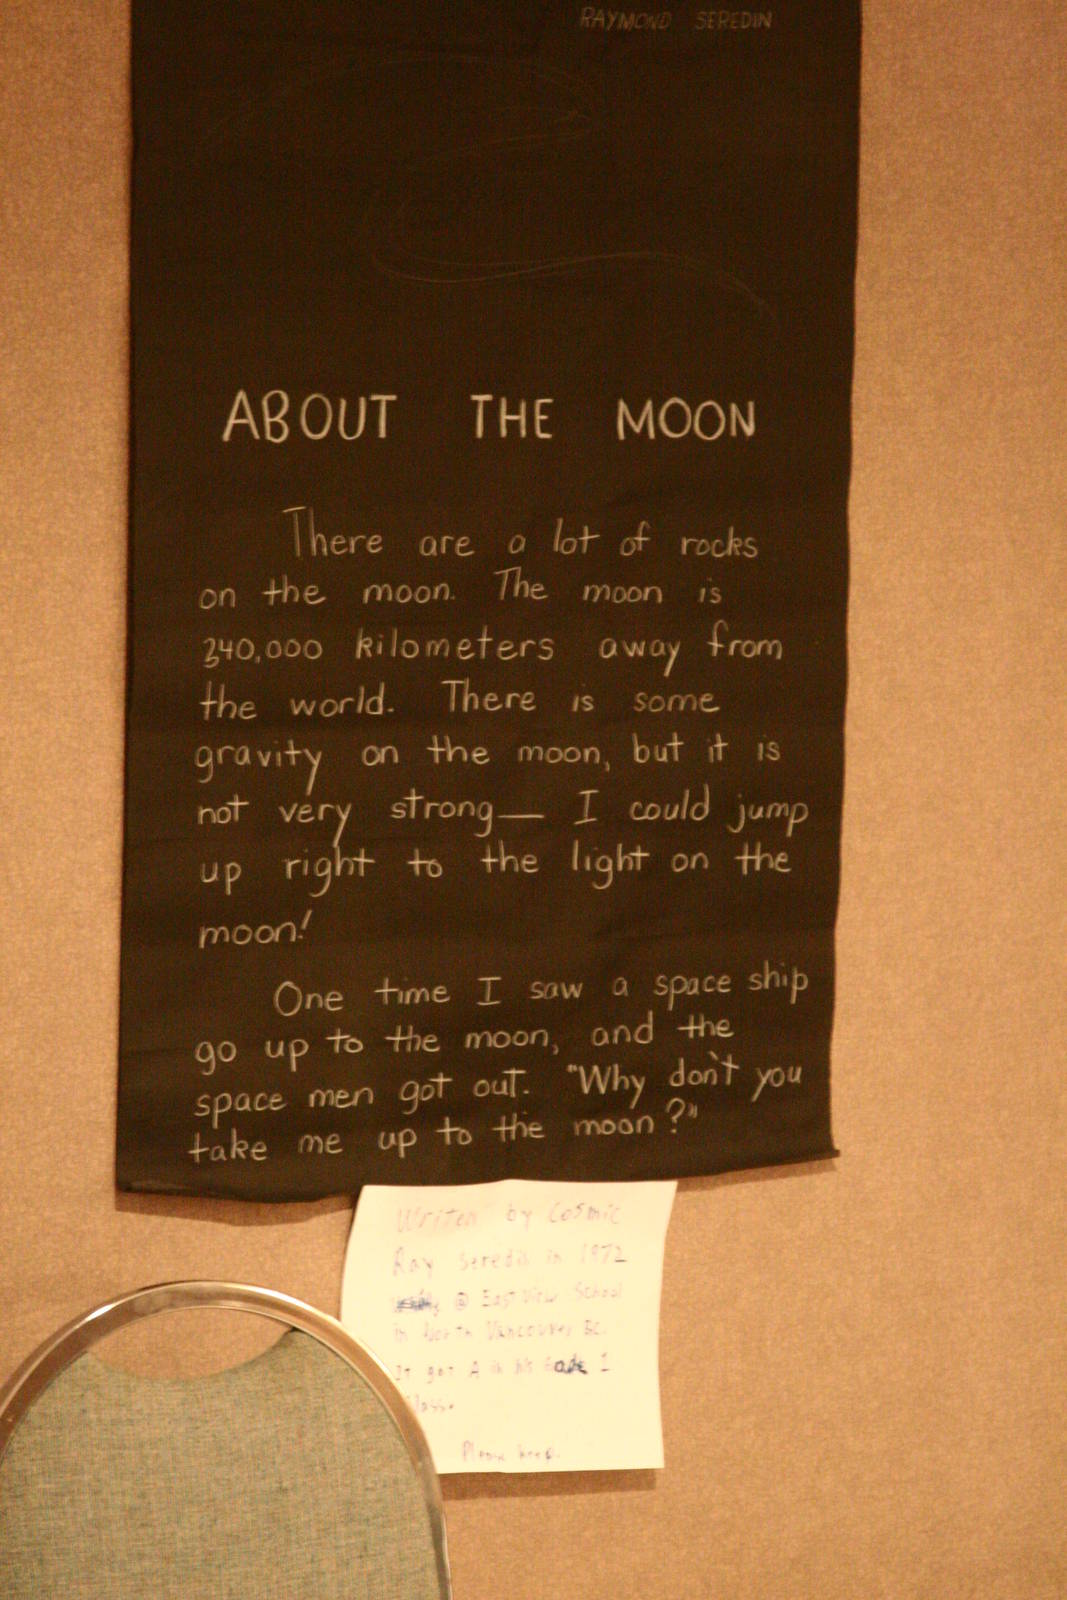 RAYMOND SEREDIN
ABOUT THE MOON
There are a lot of rocks
on the moon. The moon is
340,000 kilometers away from
the world. There is some
gravity on the moon, but it is
not very strong— I could jump
up right to the light on the
moon!
One time I saw a space ship
go up to the moon, and the
space men got out. "Why don't you
take me up to the moon?"
Writen by Cosmic
Ray Seredin in 1972
@ East View School
in North Vancouver BC.
It got A in his Grade 1
Class.
Please keep.